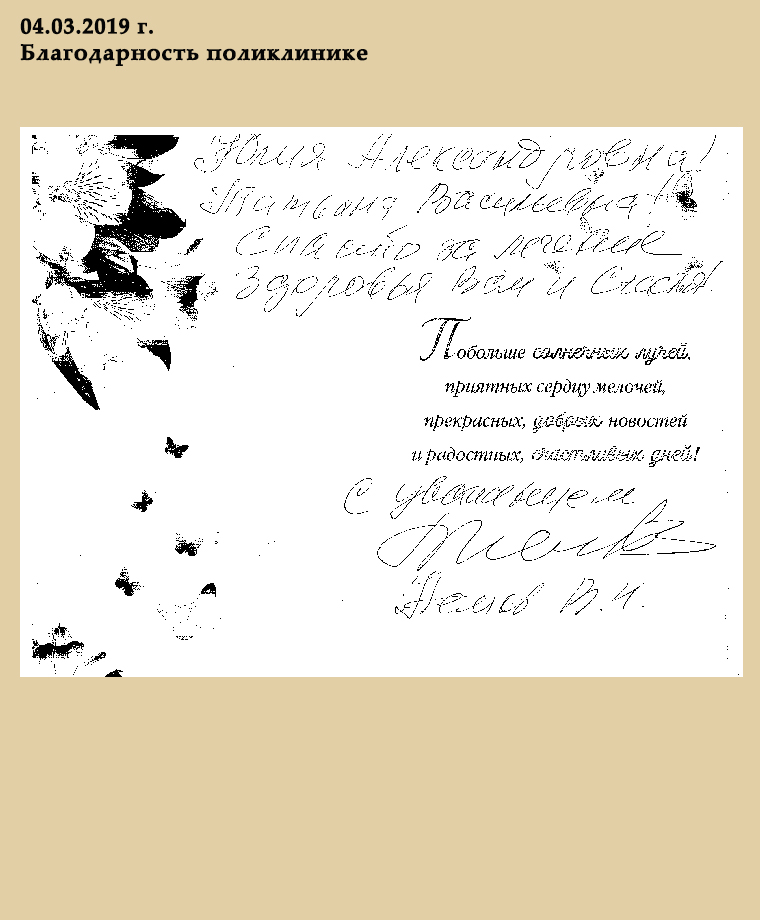 04.03.2019 г.
Благодарность поликлинике
Юлия Александровна!
Татьяна Васильевна!
Спасибо за лечение
Здоровья Вам и Счастья!
Побольше солнечных лучей,
приятных сердцу мелочей,
прекрасных, добрых новостей
и радостных, счастливых дней!
С уважением
В.И.